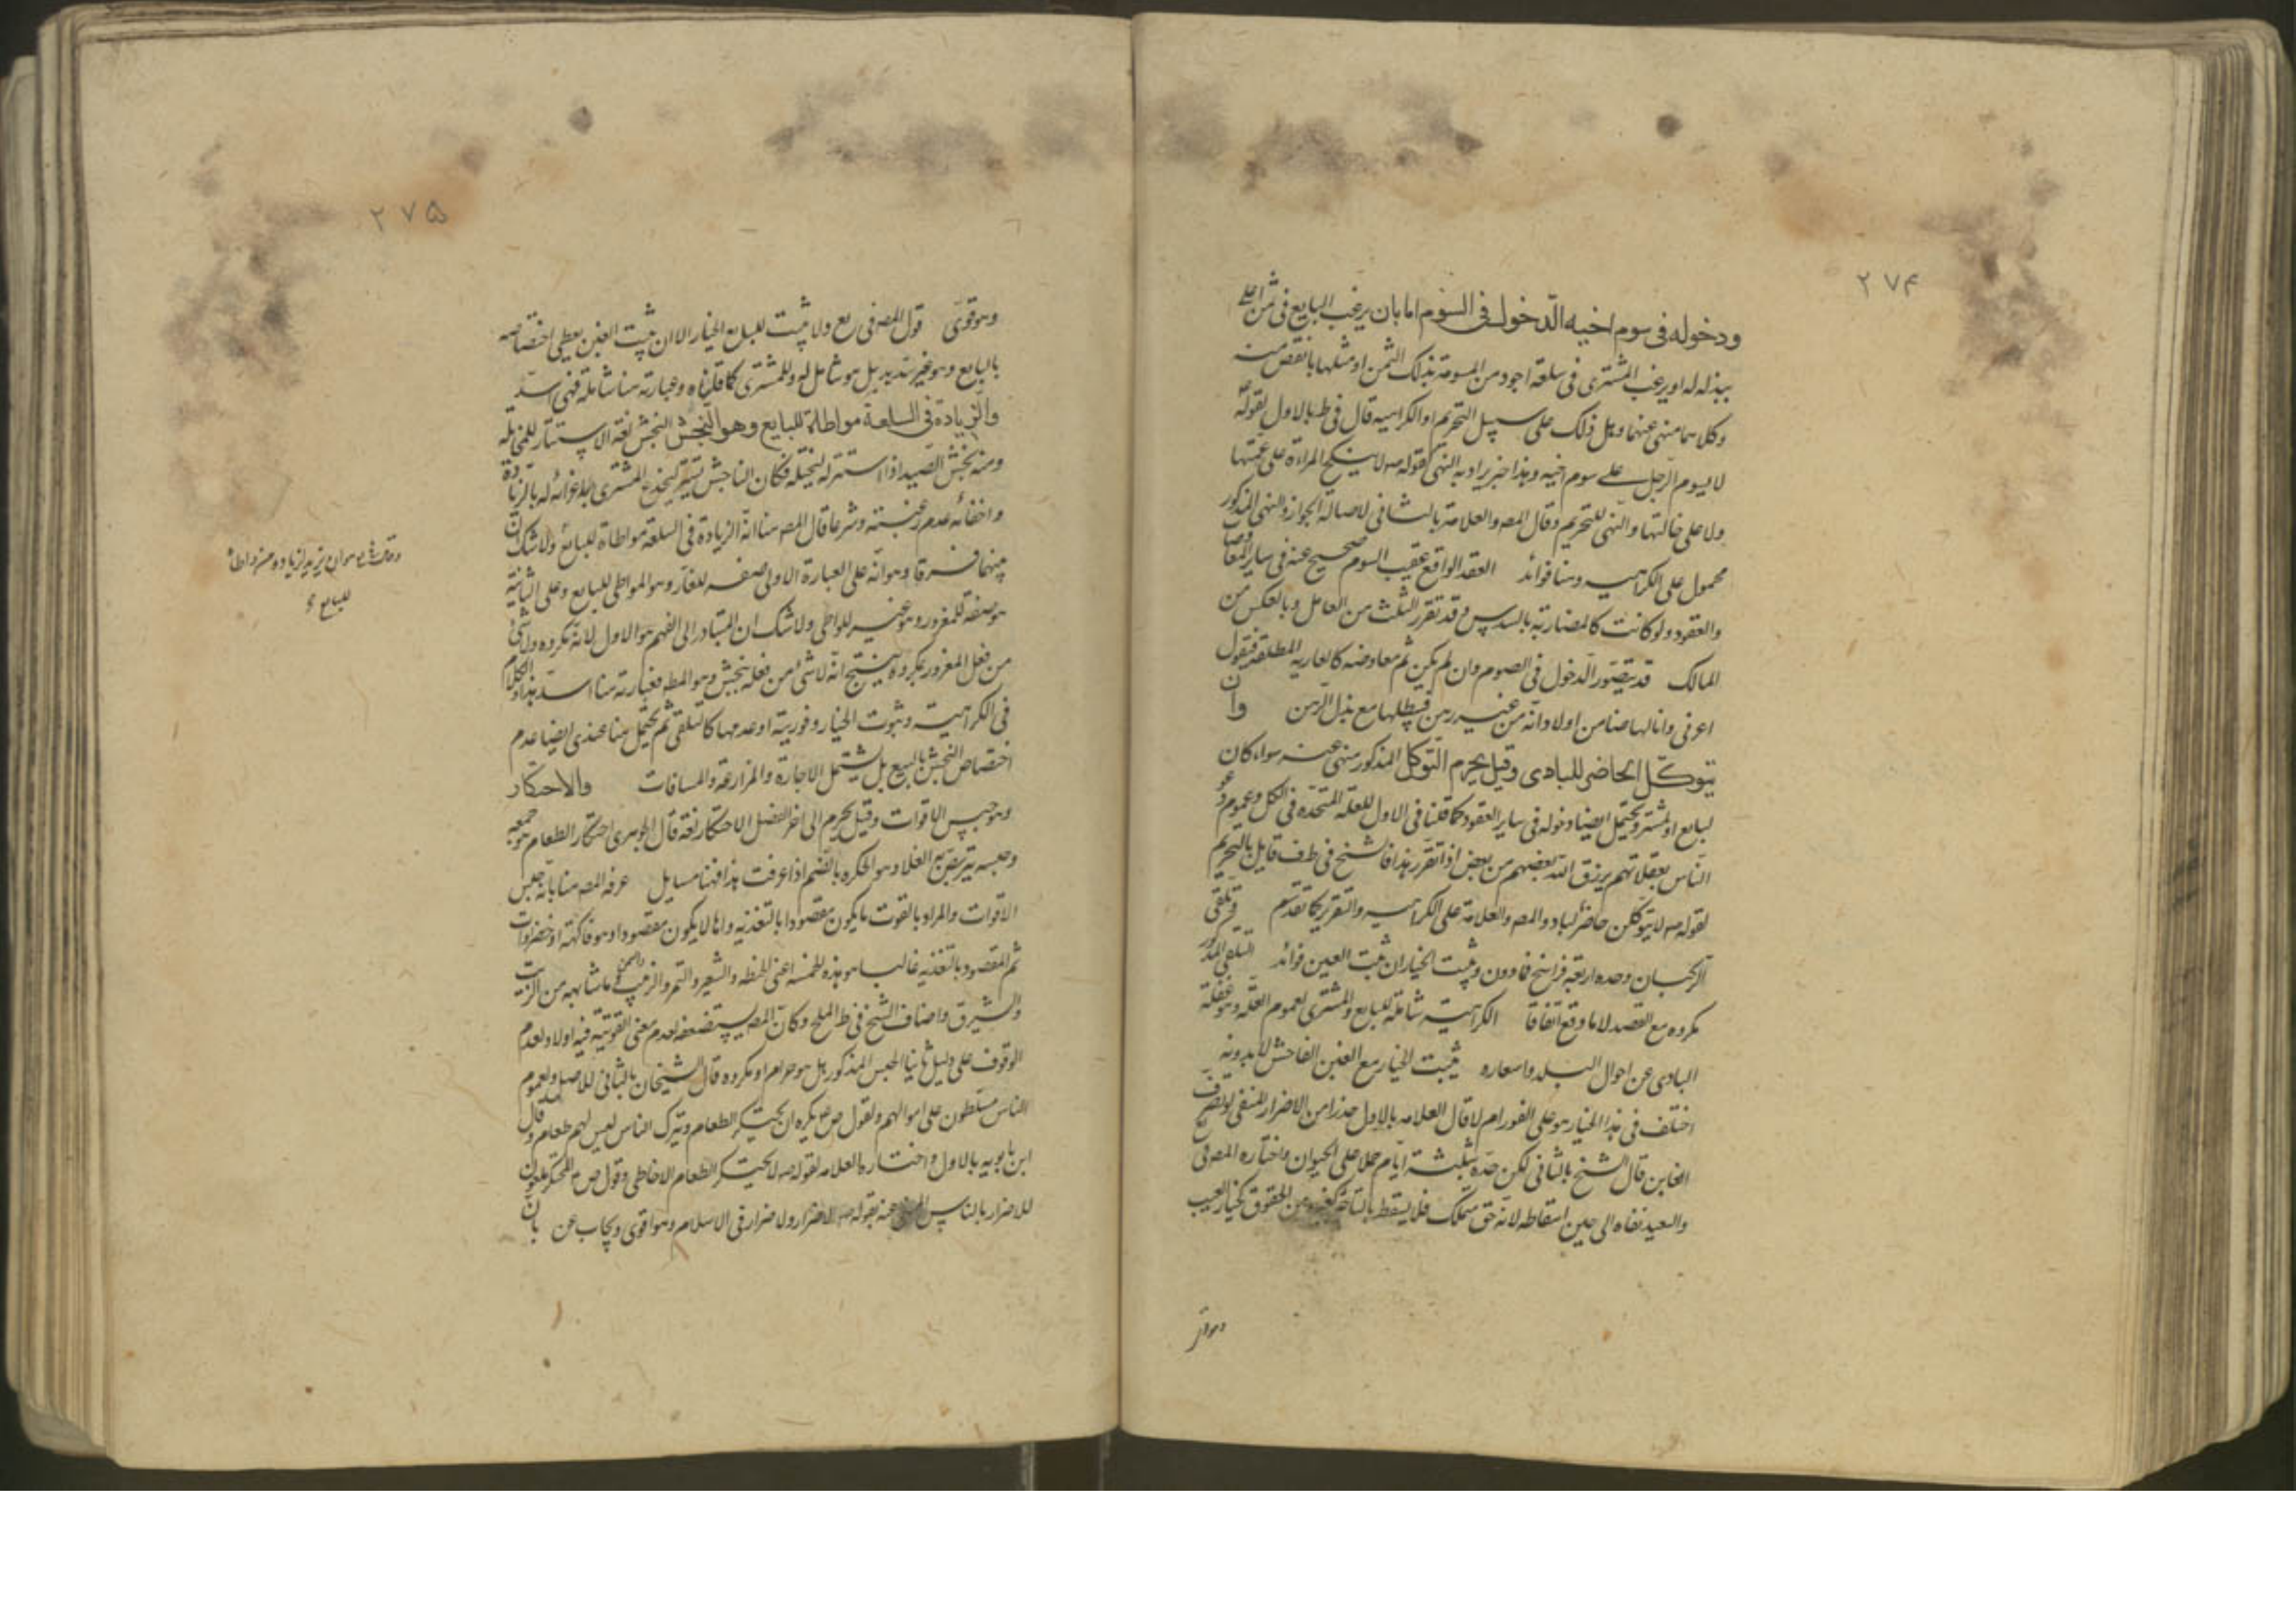 ٢٧۴
ودخوله فى سوم اخيه الدّخول فى السّوم اما بان يرغب البايع فى ثمن اعلى
يبذله له او يرغب المشترى فى سلعة اجود من المسومة بذلك الثمن او مثلها بانقص منه
وكلاهما منهى عنهما وهل ذلك على سبيل التحريم او الكراهيه قال فى ط بالاول لقوله ص
لا يسوم الرّجل على سوم اخيه وهذا خبر يراد به النهى كقوله ص لا ينكح المراءة على عمتها
ولا على خالتها والنهى للتحريم وقال المص والعلامة بالثانى لاصالة الجواز والنهى المذكور
محمول على الكراهيه وهنا فوائد العقد الواقع عقيب السوم صحيح عنه فى ساير
والعقود ولو كانت كالمضاربة بالسدس وقد تقرر الثلث من العامل وبالعكس من
المالك قد يتصوّر الدخول فى الصوم وان لم يكن ثم معاوضه كالعارية المطلقه فيقول
اعرنى وانا لها ضامن اولا وانّه من غير رهن فيطلبها مع بذل الرّهن وان
يتوكّل الحاضر للبادى وقيل يحرم التوكل المذكور منهى عنه سواء كان
لبايع او لمشتر ويحتمل ايضا دخوله فى ساير العقود كما قلنا فى الاول للعلة المتحدة فى الكل وعموم دعو
النّاس بغفلاتهم يرزق اللّه بعضهم من بعض اذا تقرّر هذا فالشيخ فى ط ف قايل بالتحريم
لقوله ص لا يتوكلن حاضر لباد والمص والعلامة على الكراهيه والتقرير كما تقدم وتلقى
الركبان وحده اربعة فراسخ فما دون ويثبت الخيار ان ثبت الغبن فوائد التلقى المذكور
مكروه مع القصد لا ما وقع اتفاقا الكراهية شاملة للبايع والمشترى لعموم العلة وهو غفلة
البادى عن احوال البلد واسعاره يثبت الخيار مع الغبن الفاحش لا بدونه
اختلف فى هذا الخيار هو على الفور ام لا قال العلامه بالاول حذرا من الاضرار المنفى لو تصرف
الغابن قال الشيخ بالثانى لكن حدّه بثلثة ايّام حملا على الحيوان واختاره المص فى
والسعيد نفاه الى حين اسقاطه لانّه حق تملك فلا يسقط بالتاخر كغيره من الحقوق كخيار العيب
وهو قو
٢٧۵
وهو قوىّ قول المص فى يع ولا يثبت للبايع الخيار الا ان يثبت الغبن يعطى اختصاصه
بالبايع وهو غير سديد بل هو شامل له وللمشترى كما قلناه وعبارته هنا شاملة فهى اسدّ
والزيادة فى السلعة مواطاة للبايع وهو النجش النجش لغة الاستتار للمخاتلة
ومنه نجش الصّيد اذا استتر له ليختله فكان الناجش يستتر ليخدع المشترى باغرائه له بالزيادة
واخفائه عدم رغبته وشرعا قال المص هنا انّه الزيادة فى السلعة مواطاة للبايع ولا شك ان
بينهما فرقا وهو انّه على العبارة الاولى صفه للغارّ وهو المواطى للبايع وعلى الثانية
هو صفة للمغرور وهو غير المواطى ولا شك ان المتبادر الى الفهم هو الاول لانّه مكروه ولا شئ
من فعل المغرور بمكروه ينتج انّه لا شئ من فعله بنجش وهو المط فعبارته هنا اسدّ هذا والكلام
فى الكراهية وثبوت الخيار وفوريته او عدمها كالتلقى ثم يحتمل هنا عندى ايضا عدم
اختصاص النجش بالبيع بل يشتمل الاجارة والمزارعة والمساقات والاحتكار
وهو حبس الاقوات وقيل يحرم الى اخر الفصل الاحتكار لغة قال الجوهرى احتكار الطعام هو جمعه
وحبسه يتربص به الغلا وهو الحكره بالضم اذا عرفت هذا فهنا مسايل عرفه المص هنا بانّه حبس
الاقوات والمراد بالقوت ما يكون مقصودا بالتغذيه واما لا يكون مقصودا وهو فاكهة او خضروات
ثم المقصود بالتغذيه غالبا هو هذه الخمسه اعنى الحنطه والشعير والتمر والزبيب والسمن وما شابهه من الزيت
والشيرق واضاف الشيخ فى ط الملح وكان المص يستضعفه لعدم معنى القوتية فيه اولا ولعدم
الوقوف على دليل ثانيا الحبس المذكور هل هو حرام او مكروه قال الشيخان بالثانى للاصل ولعموم
الناس مسلّطون على اموالهم ولقول ص ع يكره ان يحتكر الطعام ويترك الناس ليس لهم طعام وقال
ابن بابويه بالاول واختاره العلامه لقوله ص لا يحتكر الطعام الا خاطى وقول ص ع المحتكر ملعون
للاضرار بالناس المنفى عنه بقوله ص لا ضرار ولا ضرار فى الاسلام وهو اقوى ويجاب عن بان
للبايع